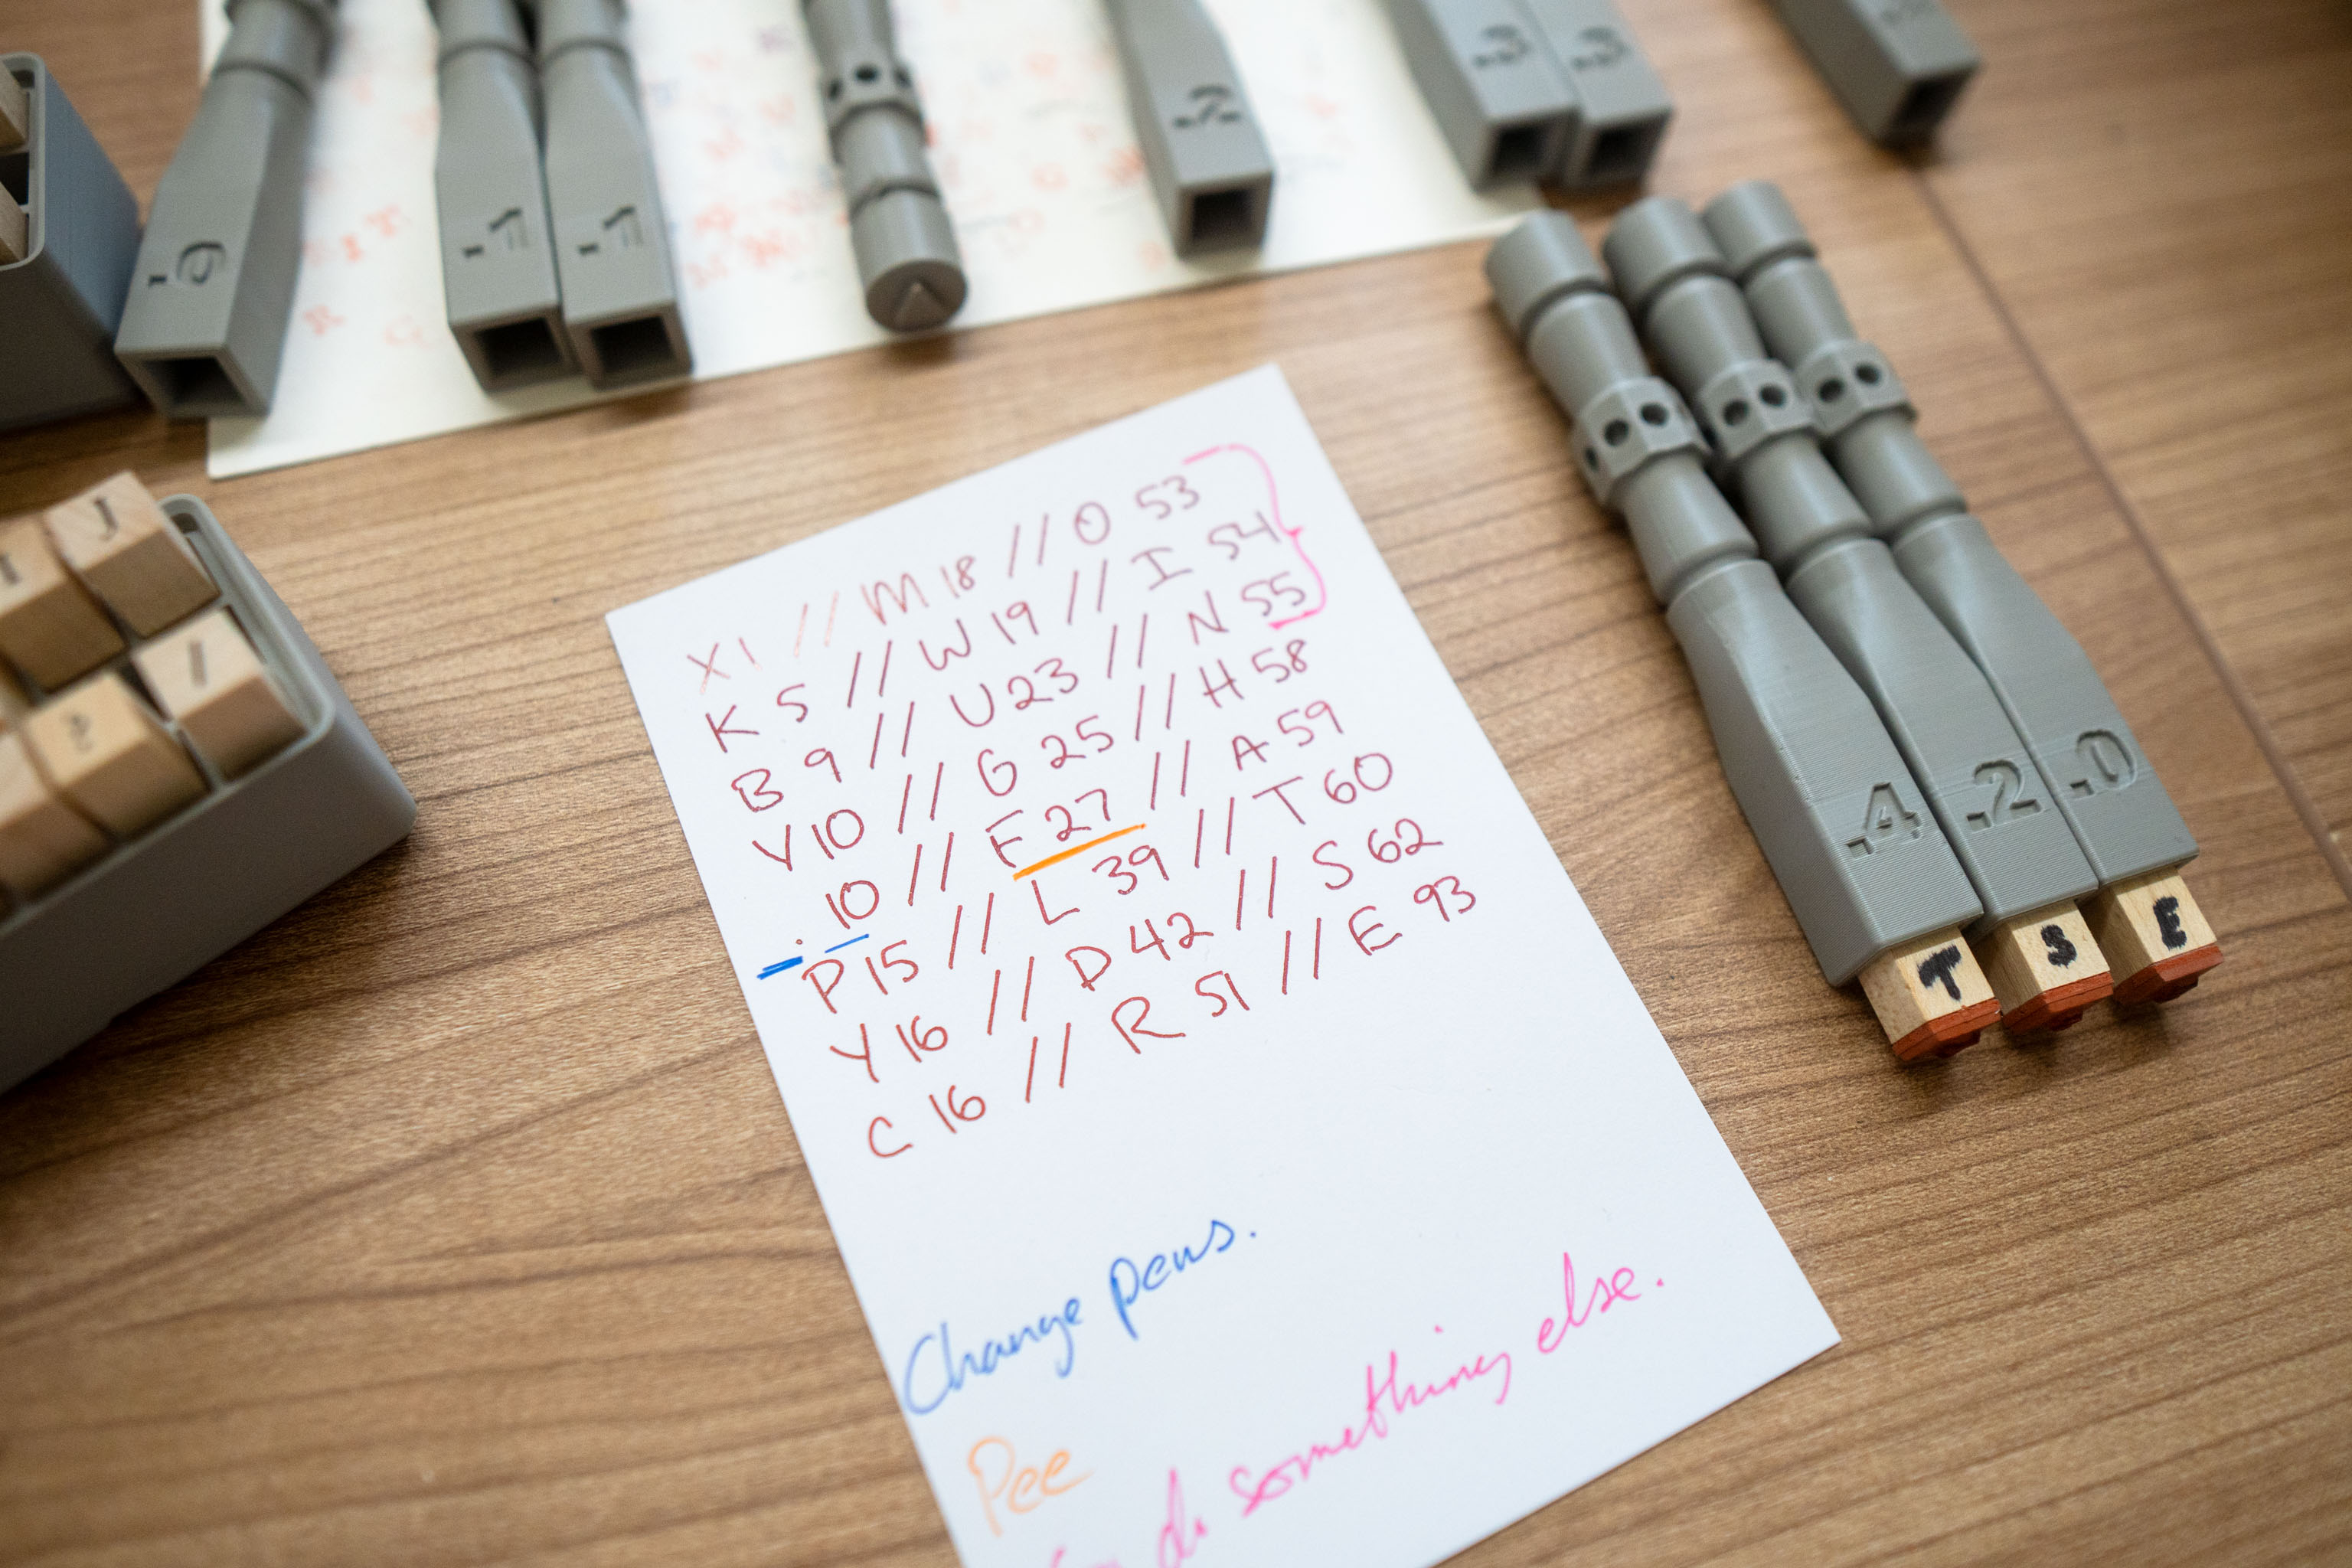 .6
.1
.1
.2
.3
.3
J
I
/
2
X 1 // M 18 // O 53
K 5 // W 19 // I 54
B 9 // U 23 // N 55
V 10 // G 25 // H 58
. 10 // F 27 // A 59
P 15 // L 39 // T 60
Y 16 // D 42 // S 62
C 16 // R 51 // E 93
Change pens.
Pee
do something else.
.4 .2 .0
T S E